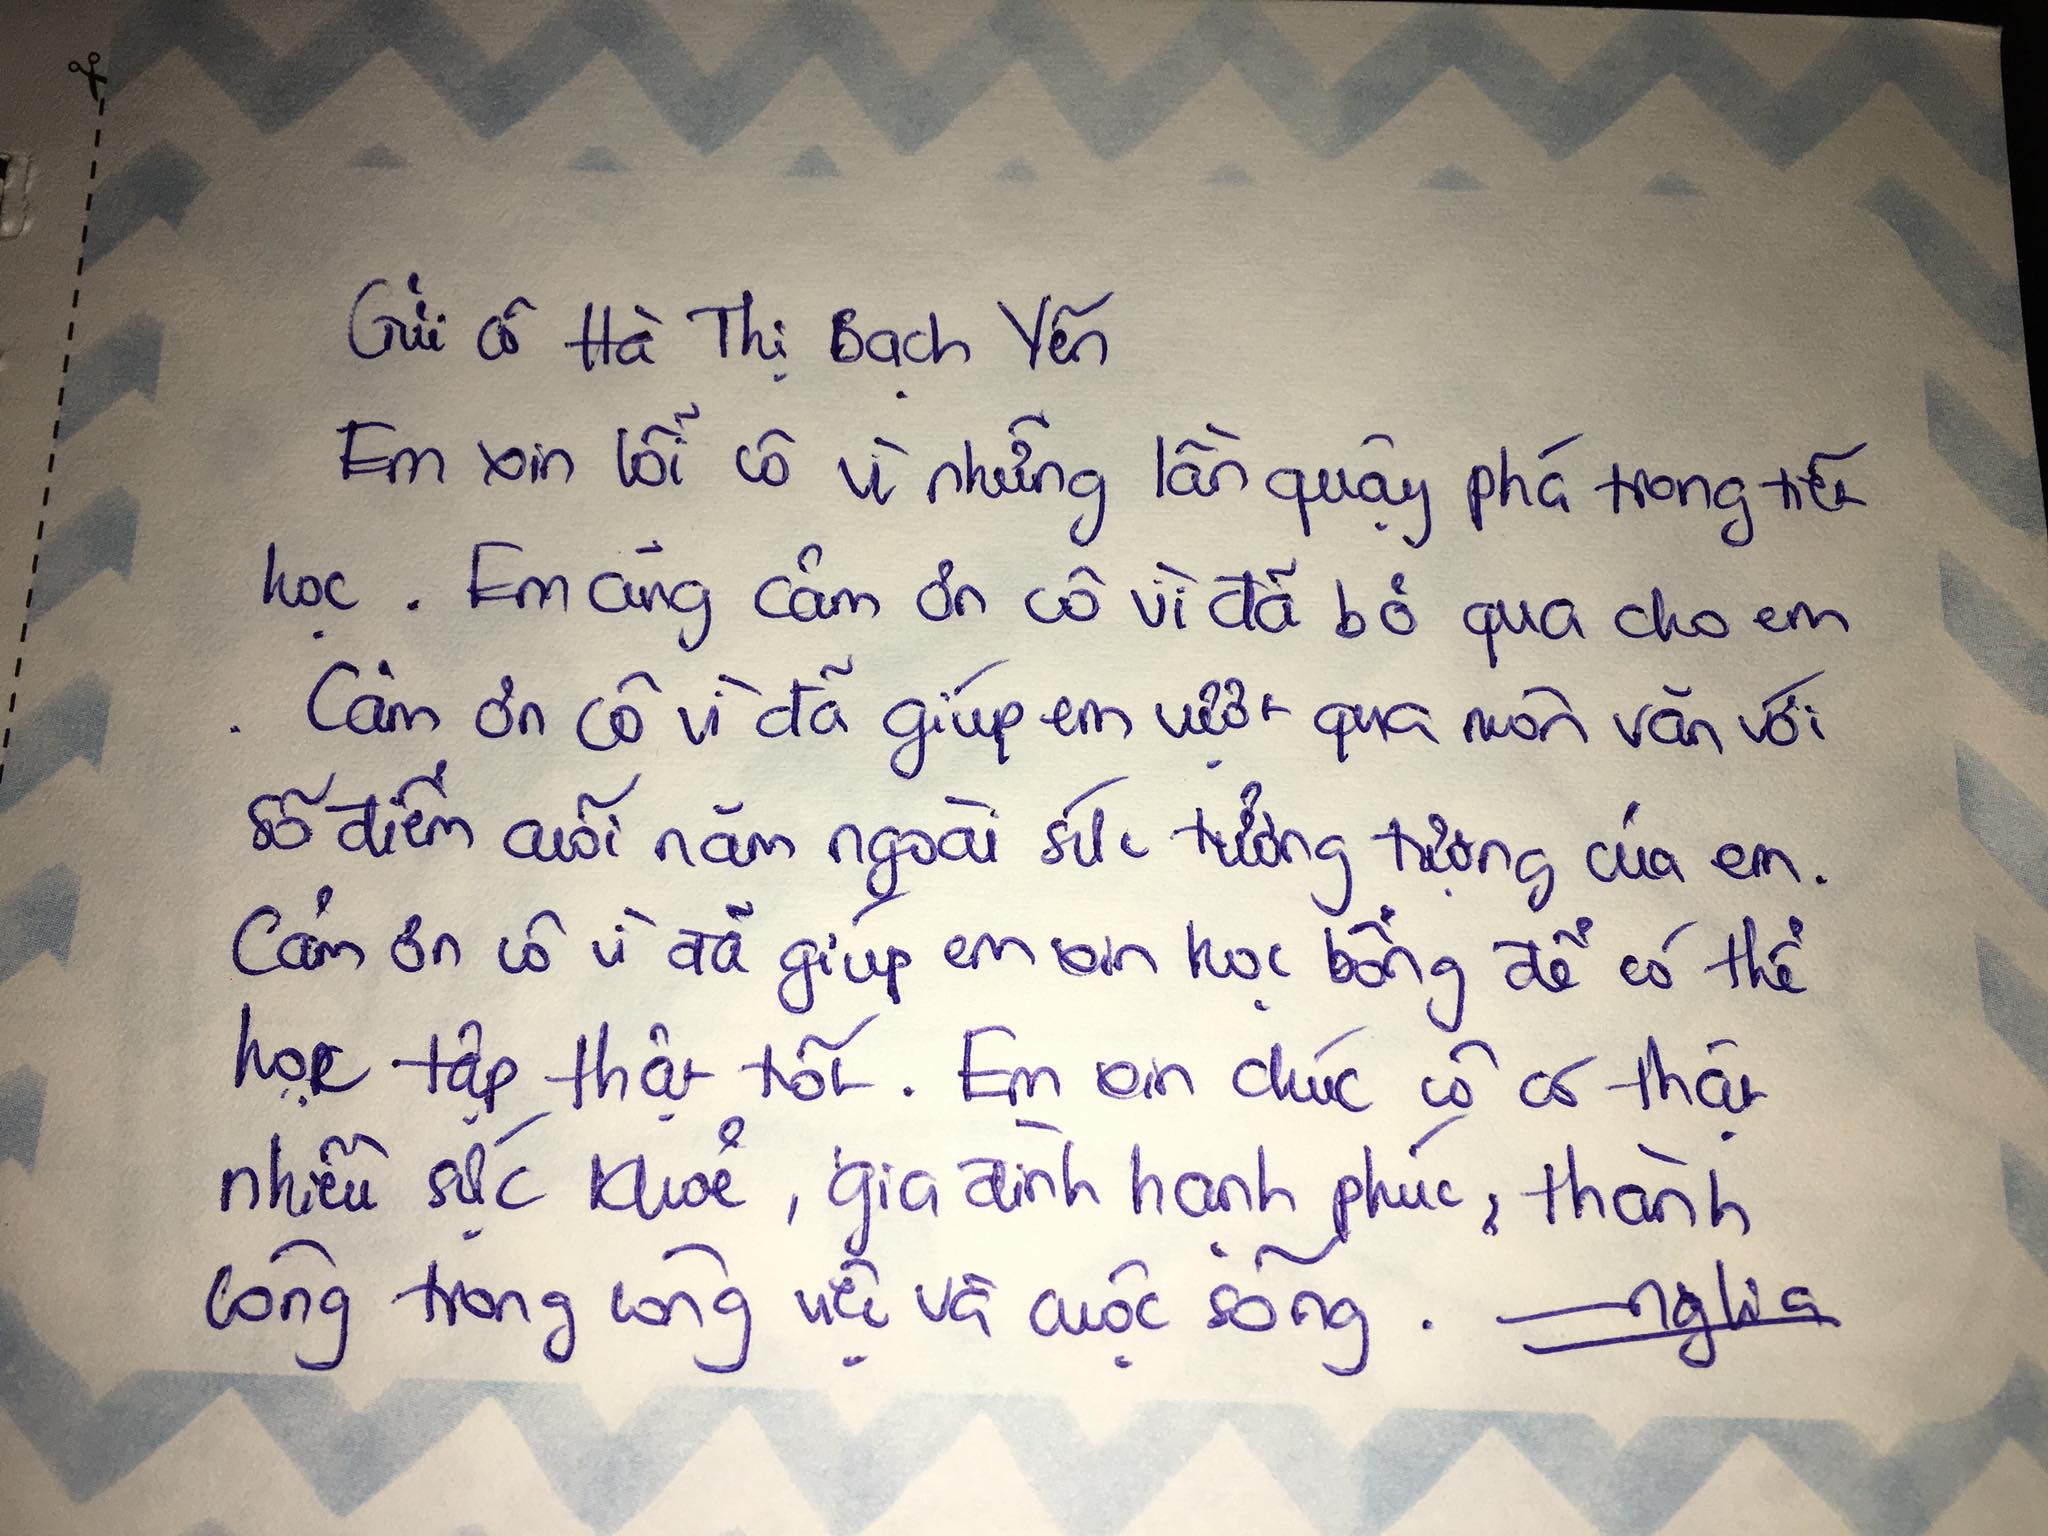 Gửi cô Hà Thị Bạch Yến
Em xin lỗi cô vì những lần quậy phá trong tiết
học. Em cũng cảm ơn cô vì đã bỏ qua cho em
. Cảm ơn cô vì đã giúp em vượt qua môn văn với
số điểm cuối năm ngoài sức tưởng tượng của em.
Cảm ơn cô vì đã giúp em xin học bổng để có thể
học tập thật tốt. Em xin chúc cô có thật
nhiều sức khoẻ, gia đình hạnh phúc, thành
công trong công việc và cuộc sống. nghia